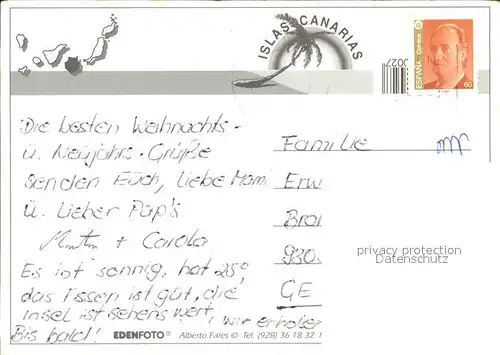 ISLAS CANARIAS
ESPAÑA Correos
60
0027
Die besten Weihnachts-
u. Neujahrs-Grüße
senden Euch, liebe Mami
u. lieber Pap's
+ Carola
Es ist sonnig, hat 25°,
das Essen ist gut, die
Insel ist sehenswert, wir erholen
Bis bald!
Familie
Erw
Bro
930
GE
privacy protection
Datenschutz
EDENFOTO® Alberto Fares © Tel. (928) 36 18 32